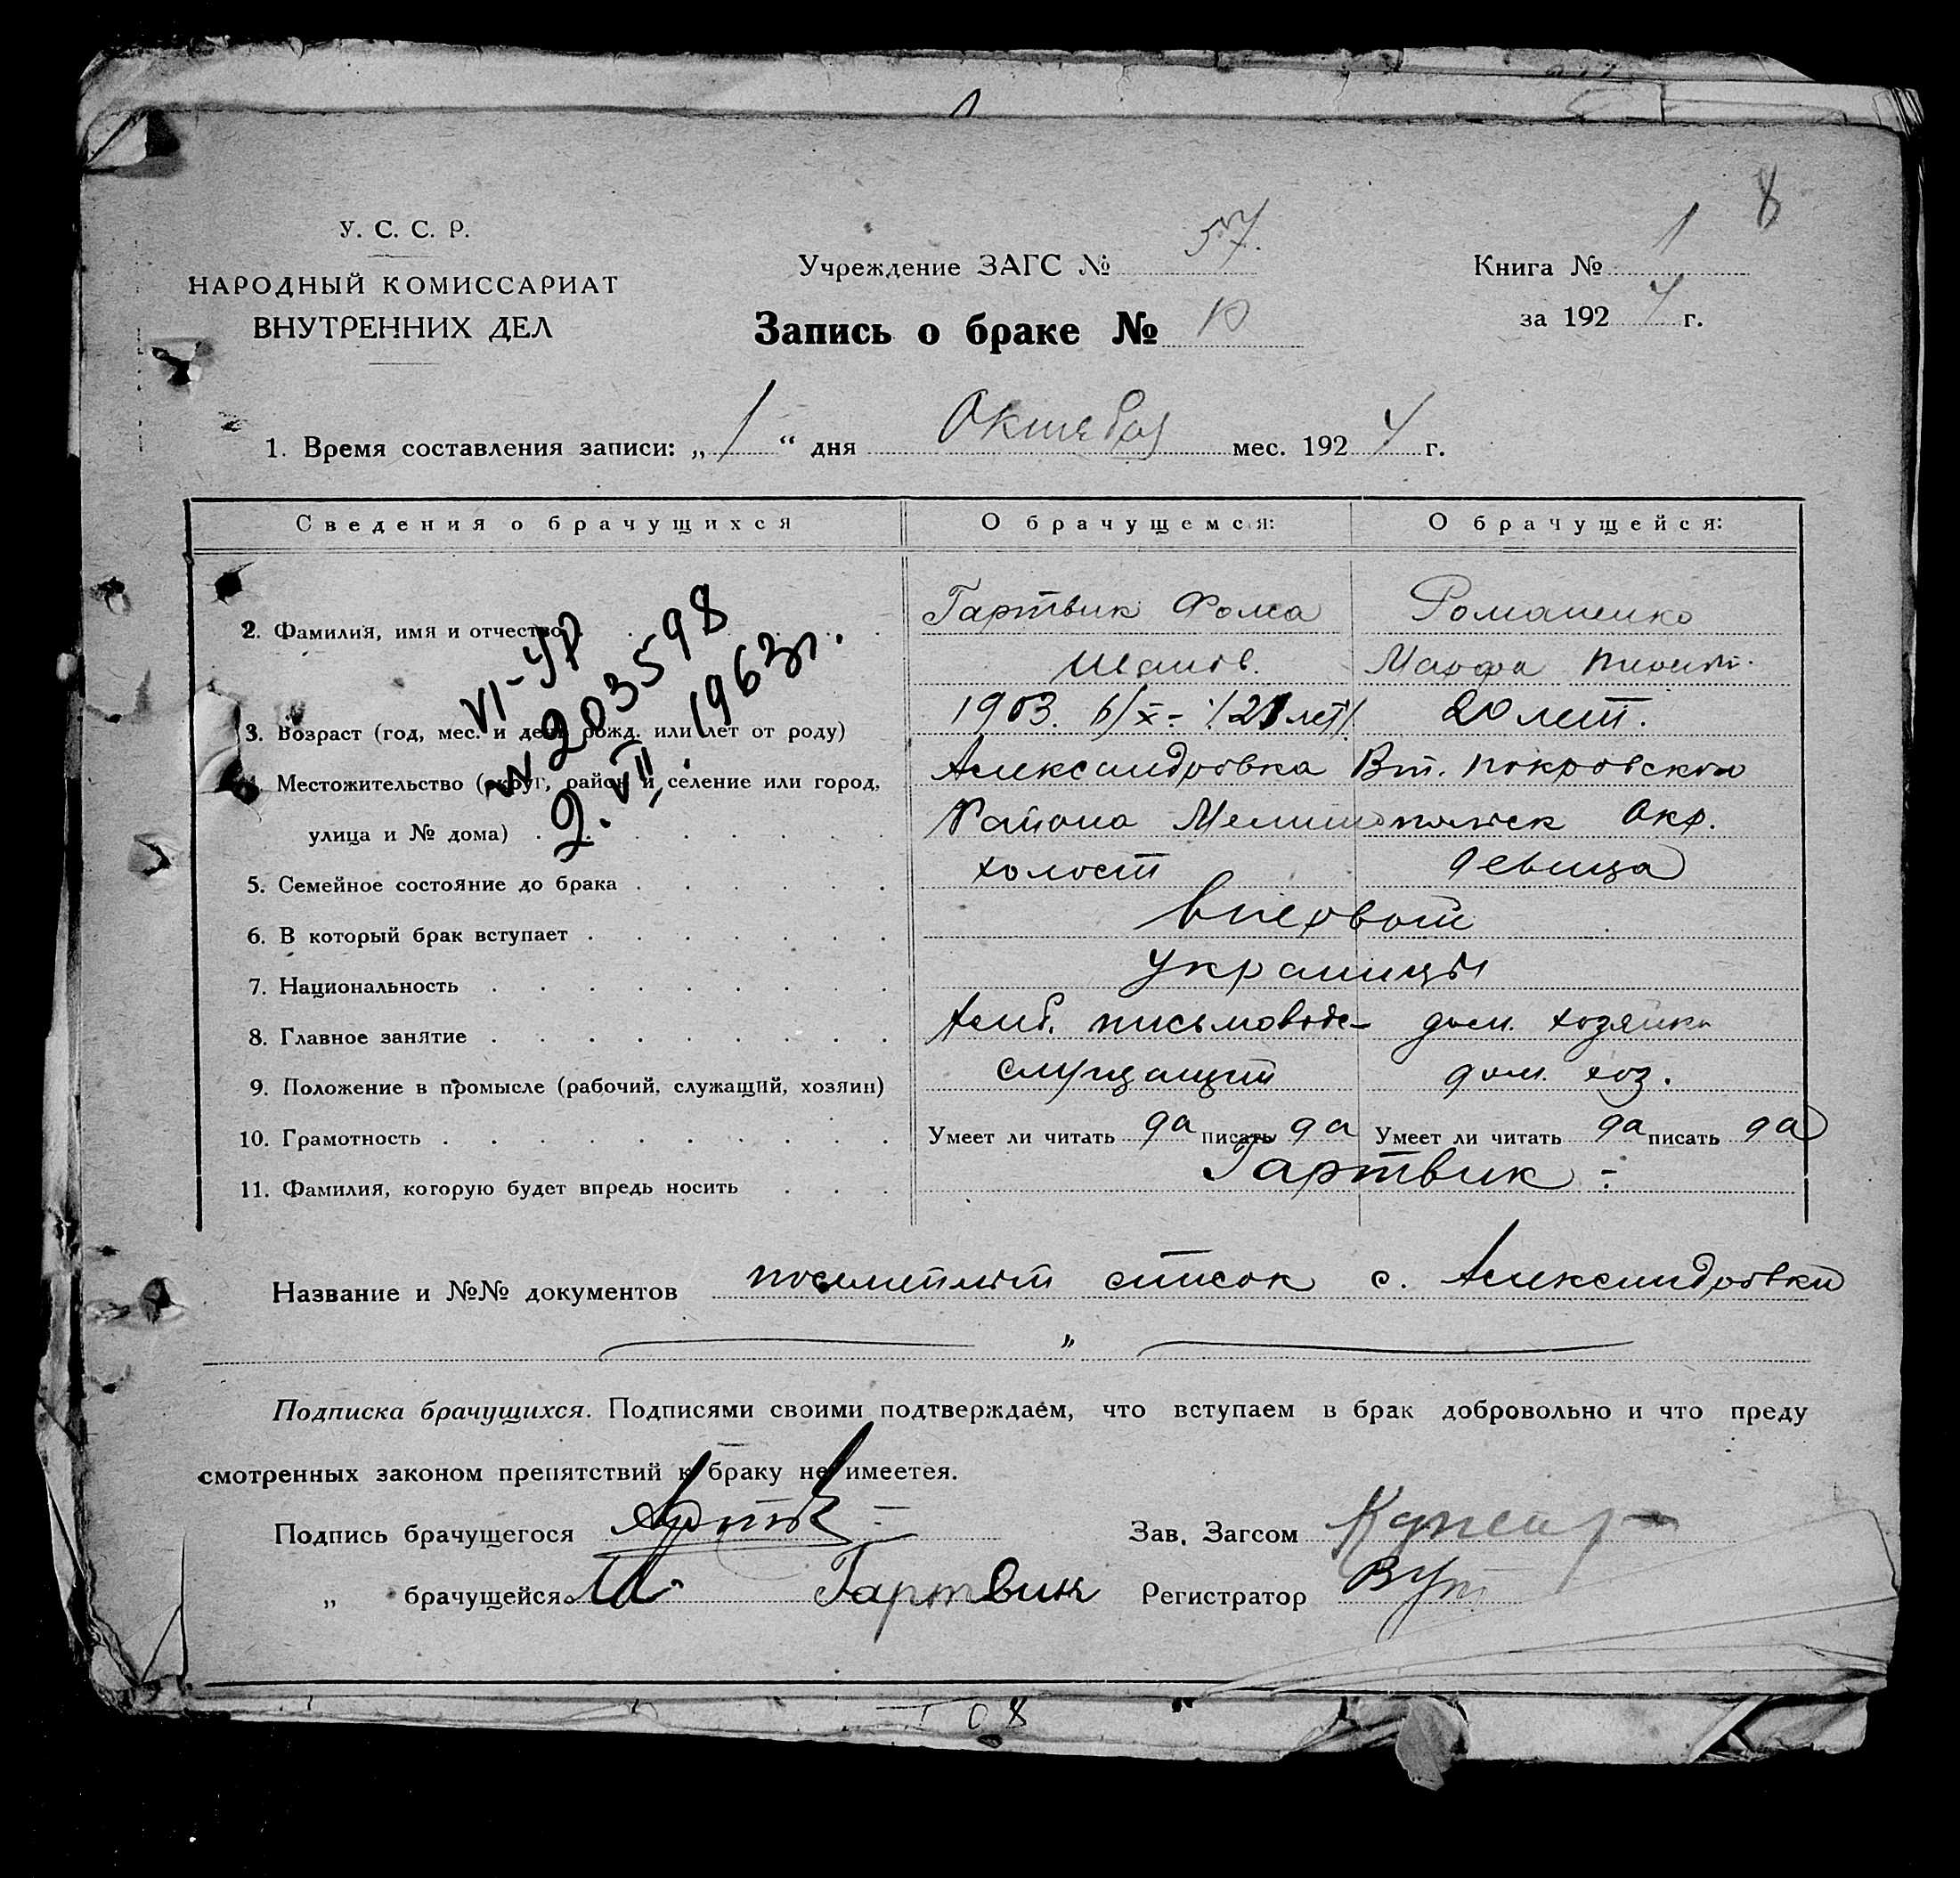 8
У. С. С. Р.
НАРОДНЫЙ КОМИССАРИАТ
ВНУТРЕННИХ ДЕЛ
Учреждение ЗАГС № 57.
Книга № 1
Запись о браке № 10
за 1924 г.
1. Время составления записи: „ 1 “ дня Октября мес. 1924 г.
Сведения о брачущихся О брачущемся: О брачущейся:
2. Фамилия, имя и отчество Гартвик Фома Романенко
Иванов. Марфа
3. Возраст (год, мес. и день рожд. или лет от роду) 1903. 6/X- /21 лет/. 20 лет.
4. Местожительство (округ, район и селение или город, Александровка Вт. Покровского
улица и № дома) Района Мелитопольск Окр.
5. Семейное состояние до брака холост девица
6. В который брак вступает впервой
7. Национальность украинцы
8. Главное занятие письмовод- дом. хозяйка
9. Положение в промысле (рабочий, служащий, хозяин) служащий дом. хоз.
10. Грамотность Умеет ли читать да писать да Умеет ли читать да писать да
11. Фамилия, которую будет впредь носить Гартвик -
VI-УР
№ 203598
9. VII, 1963 г.
Название и №№ документов список с. Александровки
„
Подписка брачущихся. Подписями своими подтверждаем, что вступаем в брак добровольно и что преду
смотренных законом препятствий к браку не имеетея.
Подпись брачущегося Зав. Загсом
„ брачущейся М. Гартвик Регистратор
108